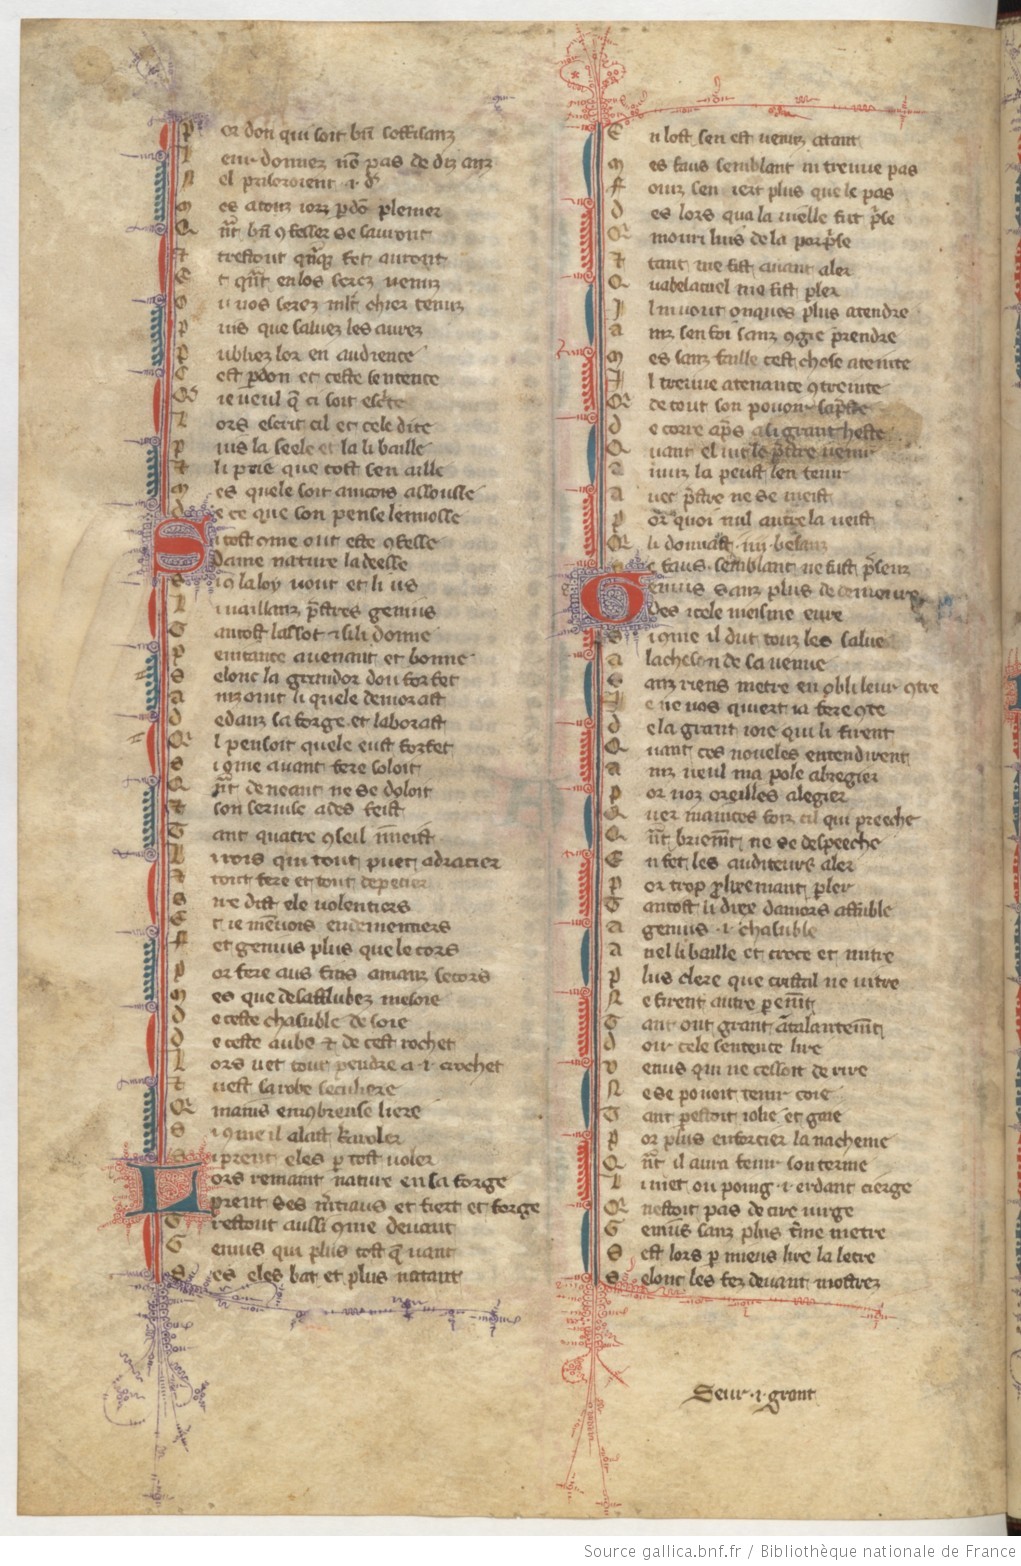 P or don qui soit bñ soffisanz
L eur donnez nõ pas de diz anz
N el priseroient .i. d'
M es a touz iorz p̲dõ plenier
Q nt bñ ꝯfesser se sauront
T restout qñq; fet auront
E t qñt en lost serez venuz
O u vos serez mlt chier tenuz
P uis que saluez les aurez
P ubliez lor en audience
C est p̲don et ceste sentence
Q ie veul q̃ ci soit escͥte
L ors escrit cil et cele dite
P uis la seele et la li baille
T li prie que tost sen aille
M es quele soit ancois assousse
D e ce que son pense lenuosse
S i tost ꝯme out este ꝯfesse
Dame nature la deesse
S i ꝯ la loy vout et li us
L i vaillanz p̃stres genius
T antost lassot ⁊ si li donne
P enitance auenant et bonne
S elonc la grandor dou forfet
A inz out li quele demorast
D edanz sa forge et laborast
I l pensoit quele eust forfet
S i ꝯme auant fere soloit
Q nt de neant ne se doloit
T son seruise ades feist
T ant quatre ꝯseil i meist
L i rois qui tout puet adracier
T tout fere et tout depecier
S ire dist ele volentiers
E t ie men vois endementiers
F et genius plus que le cors
P or fere aus fins amanz secors
M es que desafflubez me soie
D e ceste chasuble de soie
D e ceste aube et de cest rochet
L ors uet tout pendre a .i. crochet
T uest sa robe seculiere
M ains encombreuse liere
S i ꝯme il alast karoler
S i prent eles p̲ tost voler
L ors remaint nature en sa forge
Prent ses mͣtiaus et fiert et forge
T restout aussi ꝯme deuant
G enius qui plus tost q̃ vant
S es eles bat et plus natant
E n lost sen est venuz atant
M es faus semblant ni treuue pas
P artiz sen iert plus que le pas
D es lors qua la uielle fut p̃se
Q mouri luis de la porp̃se
T tant me fist auant aler
Q ua bel acuel me fist p̲ler
I l ni vout onques plus atendre
A inz sen foi sanz ꝯgie prendre
M es sanz faille cest chose ateinte
I l treuue atenance ꝯtreinte
Q de tout son pouoir sap̃ste
D e corre ap̃s a li grant heste
Q uant el uit le p̃stre venir
A nuiz la peust len tenir
A uec p̃stre ne se meist
P or quoi nul autre la veist
Q li donnast .iiij. besanz
S e faus semblant ne fust p̃senz
G enius sanz plus de demeure
Des icele meisme eure
S i ꝯme il dut touz les salue
A lacheson de sa venue
S anz riens metre en obli leur ꝯtre
I e ne vos quiert ia fere ꝯte
D e la grant ioie qui li firent
Q uant ces noueles entendirent
A inz veul ma pole abregier
P or voz oreilles alegier
Q uer maintes foiz cil qui preeche
Q nt briemt ne se despeeche
E n fet les auditeurs aler
P or trop p̲lixemant p̲ler
T antost li diex damors affuble
A genius .i. chasuble
A nel li baille et croce et mitre
P lus clere que cristal ne vitre
N e firent autre p̲emt̃
T ant ont grant atalantemt̃
D oir cele sentence lire
V enus qui ne cessoit de rire
N e se pouoit tenir coie
T ant p̲estoit iolie et gaie
P or plus enforcier la nacheme
Q nt il aura fenir son terme
L i met ou poing .i. erdant cierge
Q nestoit pas de cire virge
G enius sanz plus t̃me metre
S est lors p̲ miens lire la letre
S elonc les fez deuant mostrez
Seur .i. grant
Source gallica.bnf.fr / Bibliothèque nationale de France